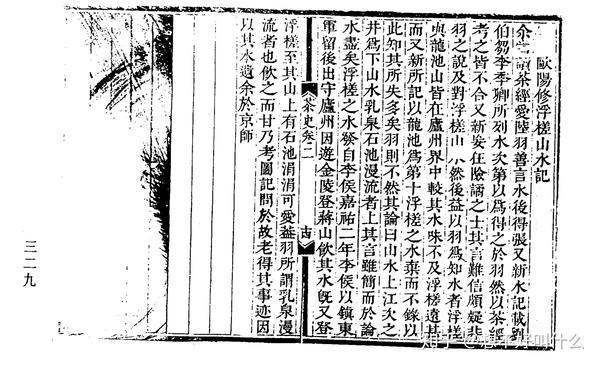 歐陽修浮槎山水記
余讀茶經愛陸羽善言水後得張又新水記載劉
伯芻李季卿所列水次第以爲得之於羽然以茶經
考之皆不合又新妄狂險譎之士其言難信頗疑非
羽之說及對浮槎山水然後益以羽爲知水者浮槎
與龍池山皆在廬州界中較其水味不及浮槎遠甚
而又新所記以龍池爲第十浮槎之水棄而不錄以
此知其所失多矣羽則不然其論曰山水上江次之
井爲下山水乳泉石池漫流者上其言雖簡而於論
水盡矣浮槎之水發自李侯嘉祐二年李侯以鎮東
軍留後出守廬州因遊金陵登蔣山飲其水旣又登
茶史卷二
浮槎至其山上有石池涓涓可愛蓋羽所謂乳泉漫
流者也飲之而甘乃考圖記問於故老得其事迹因
以其水遺余於京師
三二九
知乎 叫什么